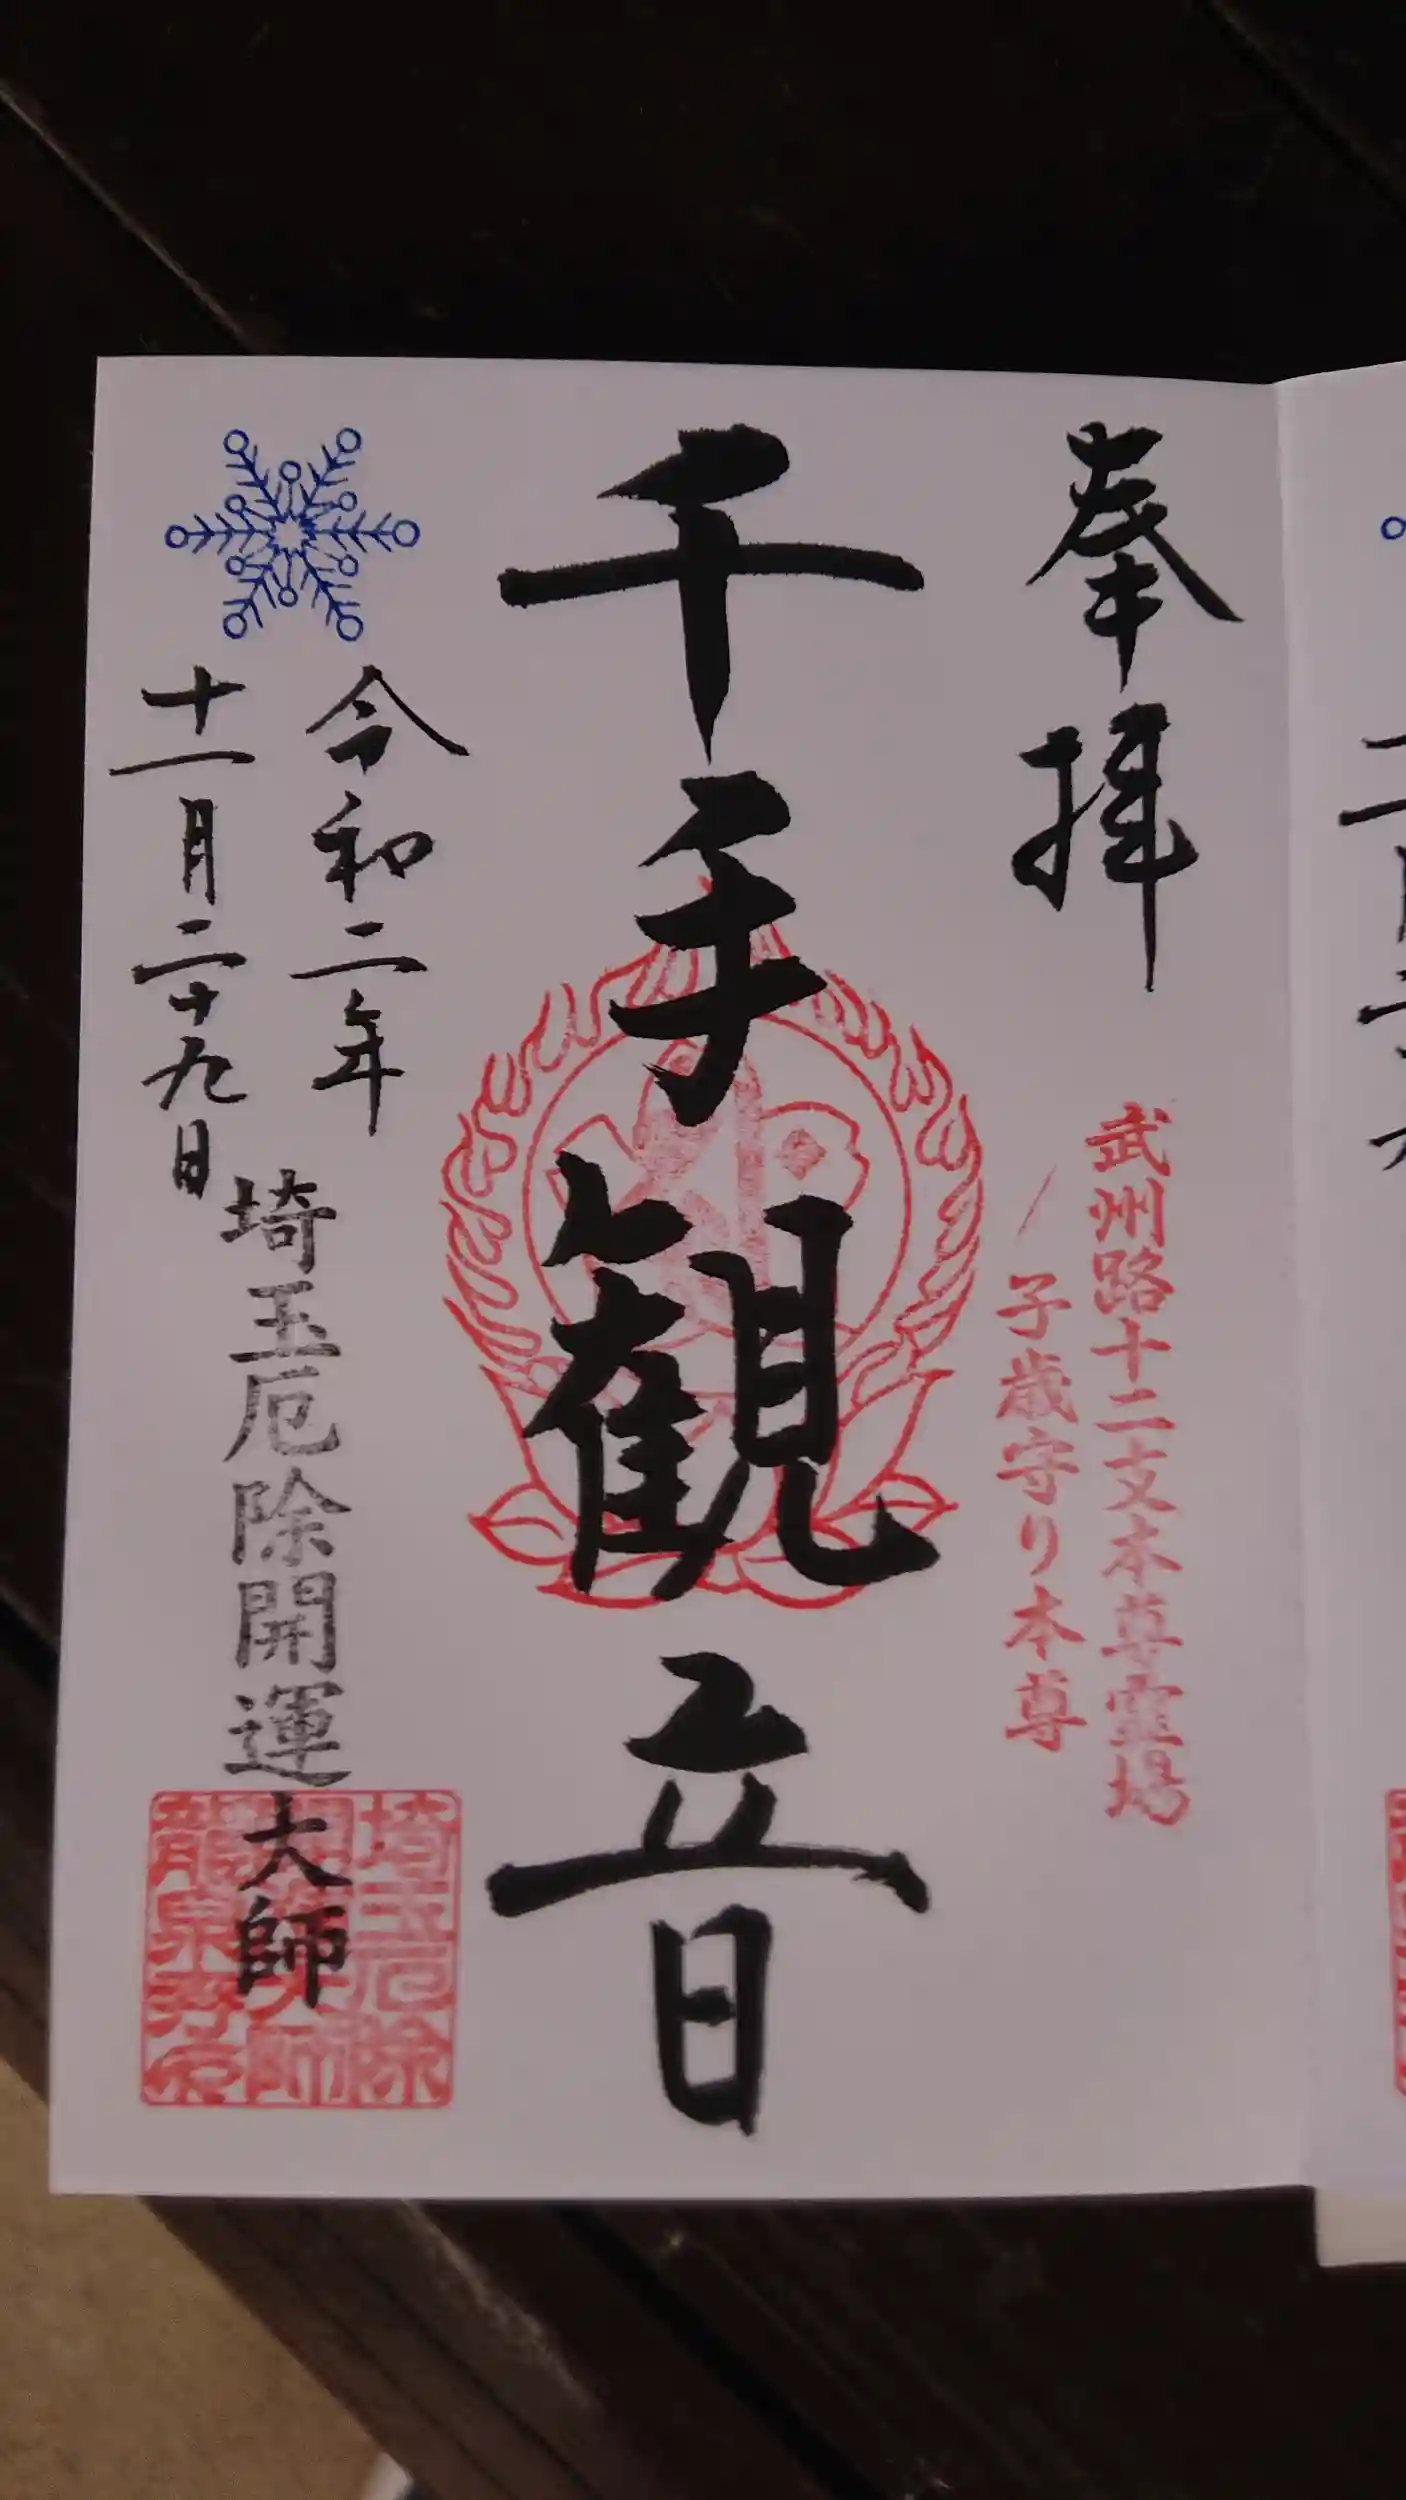 奉拝
武州路十二支本尊霊場
子歳守り本尊
千手観音
令和二年
十一月二十九日
埼玉厄除開運大師
埼玉厄除
開運大師
龍泉寺